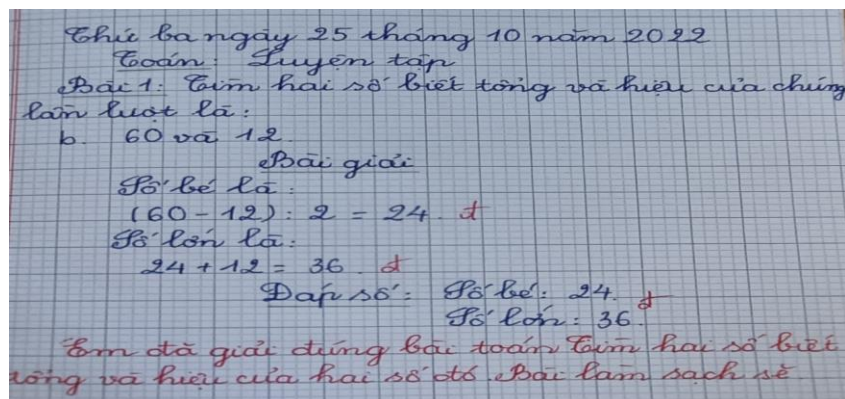 Thứ ba ngày 25 tháng 10 năm 2022
Toán: Luyện tập
Bài 1: Tìm hai số biết tổng và hiệu của chúng
lần lượt là:
b. 60 và 12.
Bài giải
Số bé là:
(60 - 12) : 2 = 24. đ
Số lớn là:
24 + 12 = 36. đ
Đáp số: Số bé: 24. đ
Số lớn: 36.
Em đã giải đúng bài toán Tìm hai số biết
tổng và hiệu của hai số đó. Bài làm sạch sẽ.